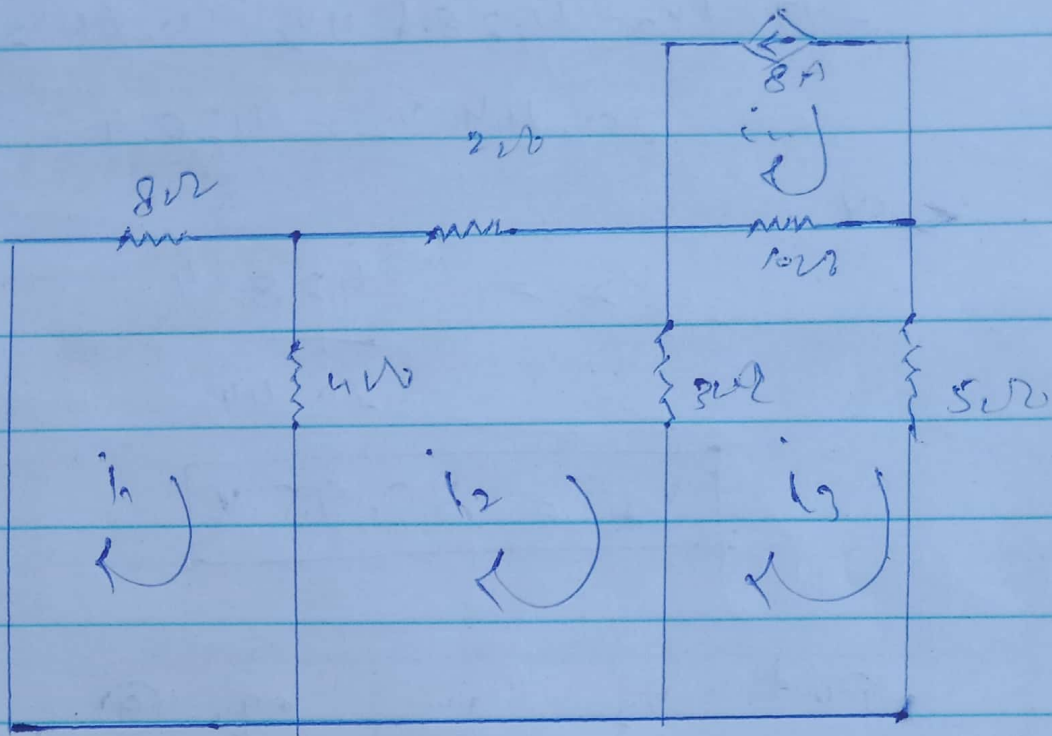 8A
2Ω
8Ω
10Ω
4Ω
3Ω
5Ω
i1
i2
i3